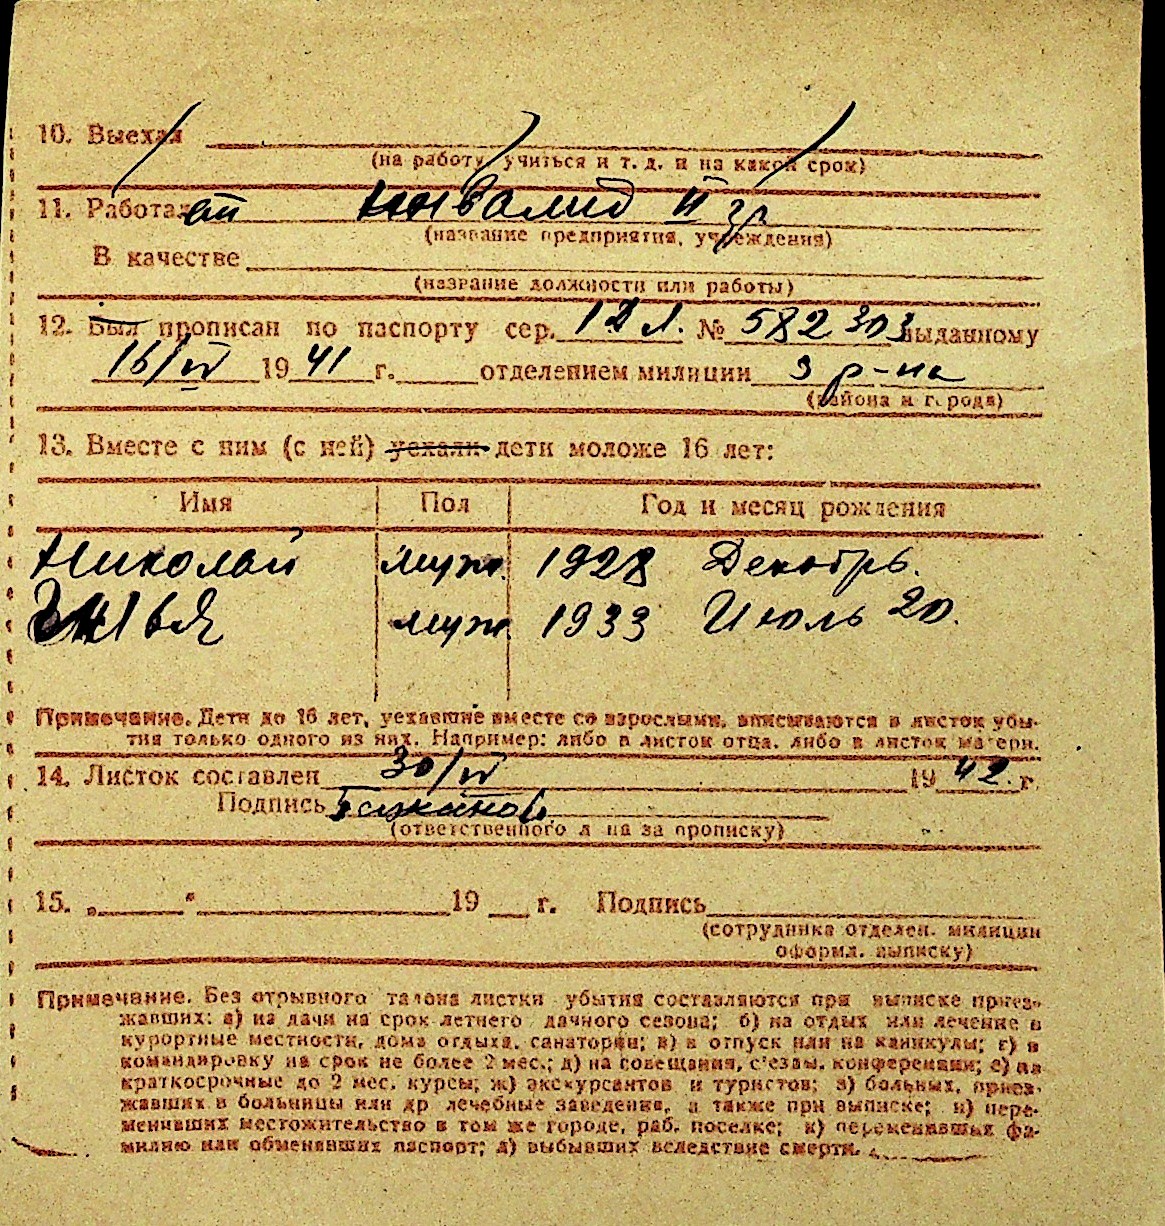 10. Выехал
(на работу, учиться и т. д. и на какой срок)
11. Работал инвалид II гр
(название предприятия, учреждения)
В качестве
(название должности или работы)
12. Был прописан по паспорту сер. № 582303 выданному
16/IV 1941 г. отделением милиции 3 р-на
(района и города)
13. Вместе с ним (с ней) уехали дети моложе 16 лет:
Имя Пол Год и месяц рождения
Николай муж. 1928 Декабрь.
Илья муж 1933 Июль 20.
Примечание. Дети до 16 лет, уехавшие вместе со взрослыми, вписываются в листок убы-
тия только одного из них. Например: либо в листок отца, либо в листок матери.
14. Листок составлен 30/IV 1942 г.
Подпись
(ответственного л на за прописку)
15. „ “ 19 г. Подпись
(сотрудника отделен. милиции
оформл. выписку)
Примечание. Без отрывного талона листки убытия составляются при выписке приез-
жавших: а) на дачи на срок летнего дачного сезона; б) на отдых или лечение в
курортные местности, дома отдыха, санатории; в) в отпуск или на каникулы; г) в
командировку на срок не более 2 мес.; д) на совещания, с'езды, конференции; е) на
краткосрочные до 2 мес. курсы; ж) экскурсантов и туристов; з) больных, приез-
жавших в больницы или др лечебные заведения, а также при выписке; и) пере-
менивших местожительство в том же городе, раб. поселке; к) переменивших фа-
милию или обменявших паспорт; л) выбывших вследствие смерти.